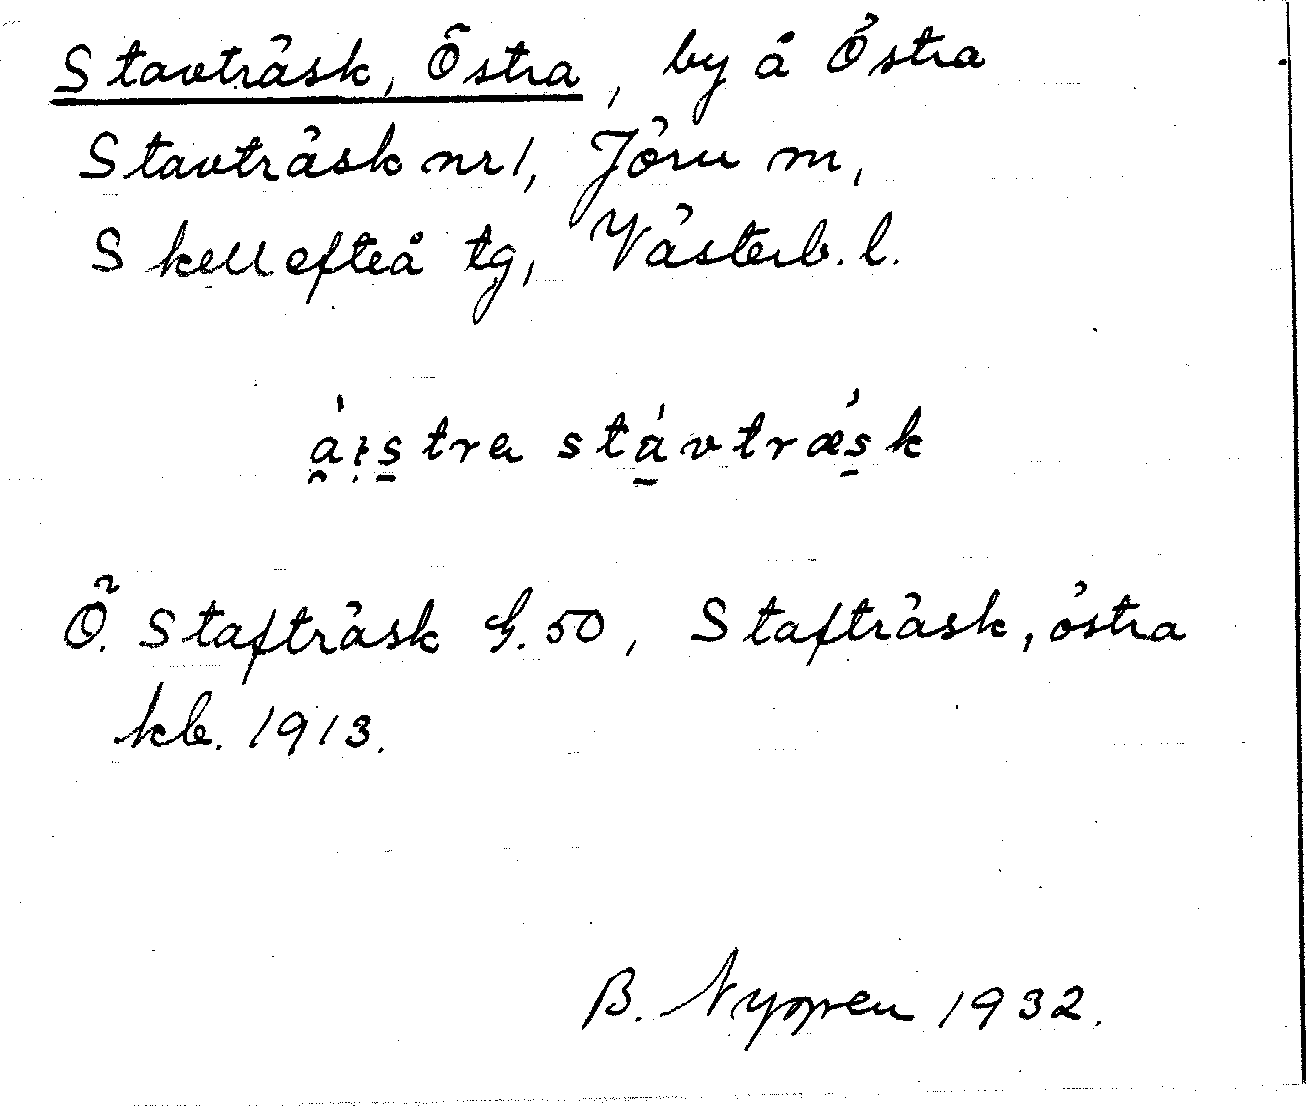 Stavträsk, Östra, by å Östra
Stavträsk nr 1, Jörn m,
Skellefteå tg, Västerb. l.
stávtræsk
Ö. Stafträsk G. 50, Stafträsk, östra
kb. 1913.
B. 1932.